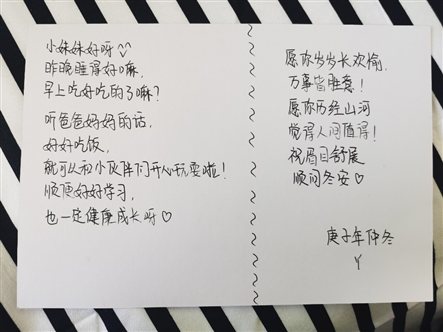 小妹妹好呀
昨晚睡得好嘛,
早上吃好吃的了嘛?
听爸爸妈妈的话,
好好吃饭,
就可以和小伙伴们开心玩耍啦!
顺便好好学习,
也一定健康成长呀♡
愿你岁岁长欢愉,
万事皆胜意!
愿你历经山河
觉得人间值得!
祝眉目舒展
顺问冬安♡
庚子年仲冬
Y